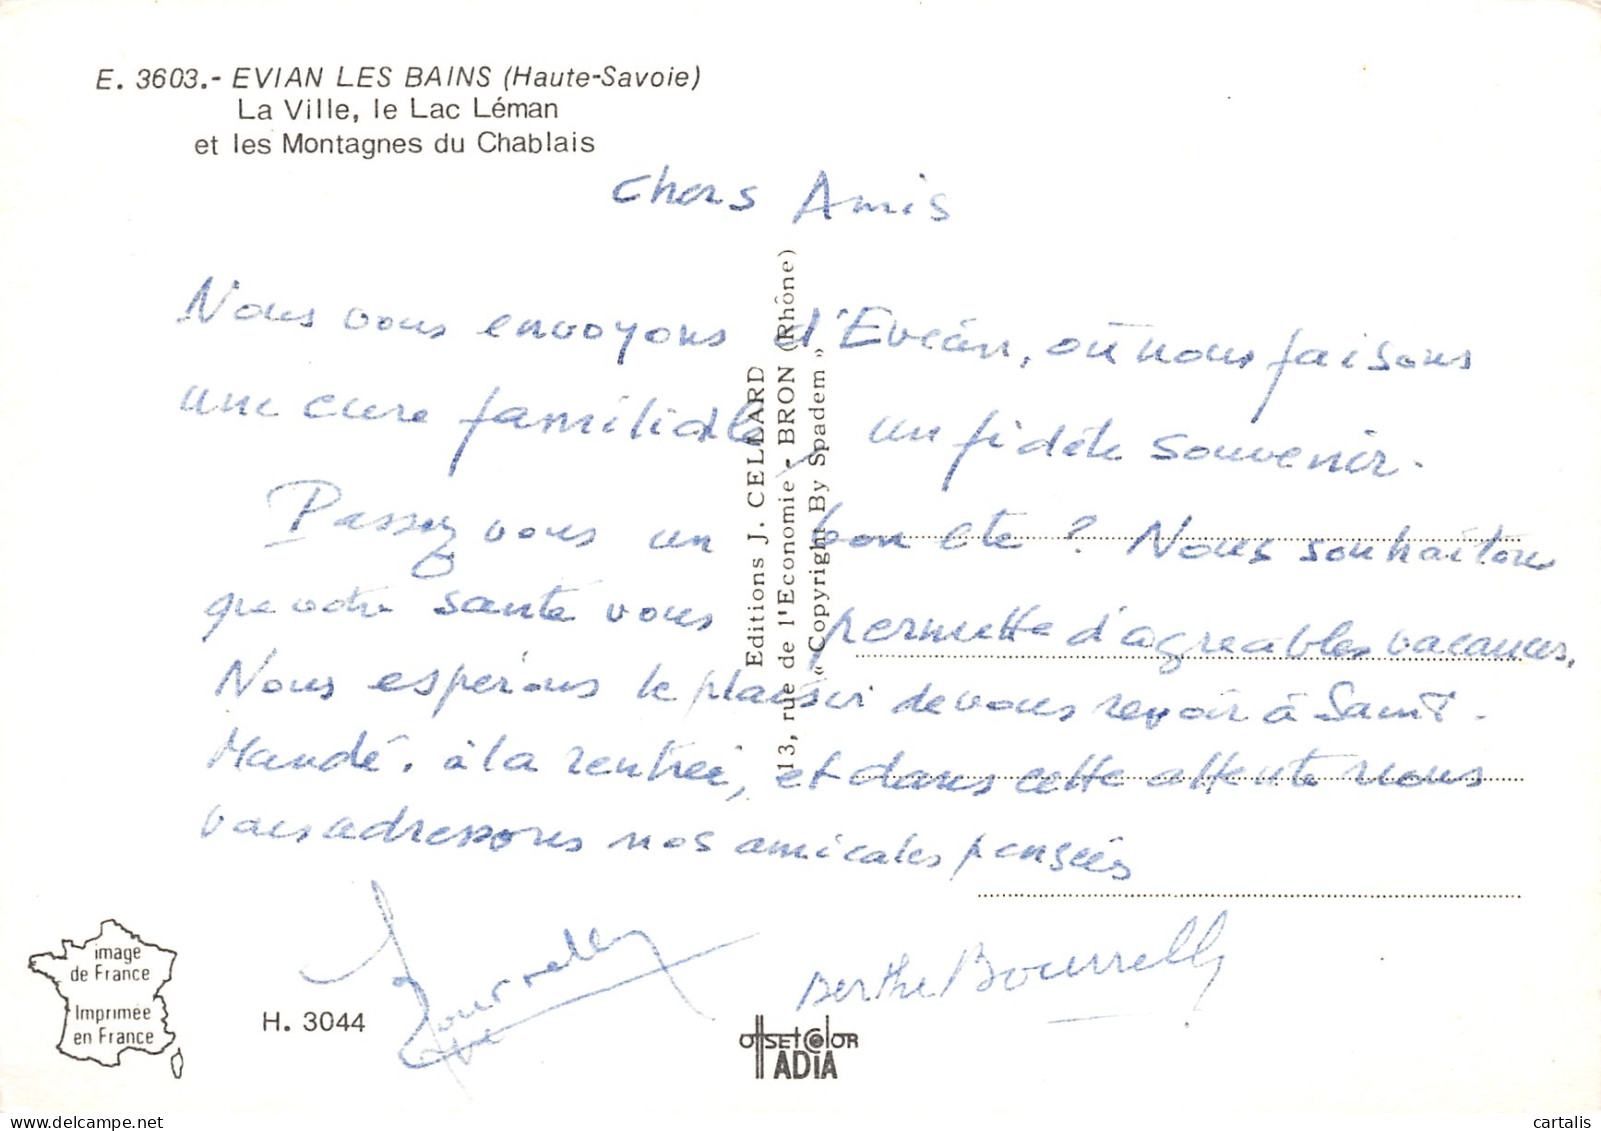 E. 3603.- EVIAN LES BAINS (Haute-Savoie)
La Ville, le Lac Léman
et les Montagnes du Chablais
Chers Amis
Nous vous envoyons d'Evian, où nous faisons
une cure familiale, un fidèle souvenir.
Passez vous un bon été ? Nous souhaitons
que votre santé vous permette d'agréables vacances.
Nous espérons le plaisir de vous revoir à Saint-
Mandé, à la rentrée, et dans cette attente nous
vous adressons nos amicales pensées
Bourrelly
Berthe Bourrelly
Editions J. CELLARD
13, rue de l'Economie - BRON (Rhône)
« Copyright By Spadem »
image
de France
Imprimée
en France
H. 3044
OffSET COLOR
ADIA
cartalis